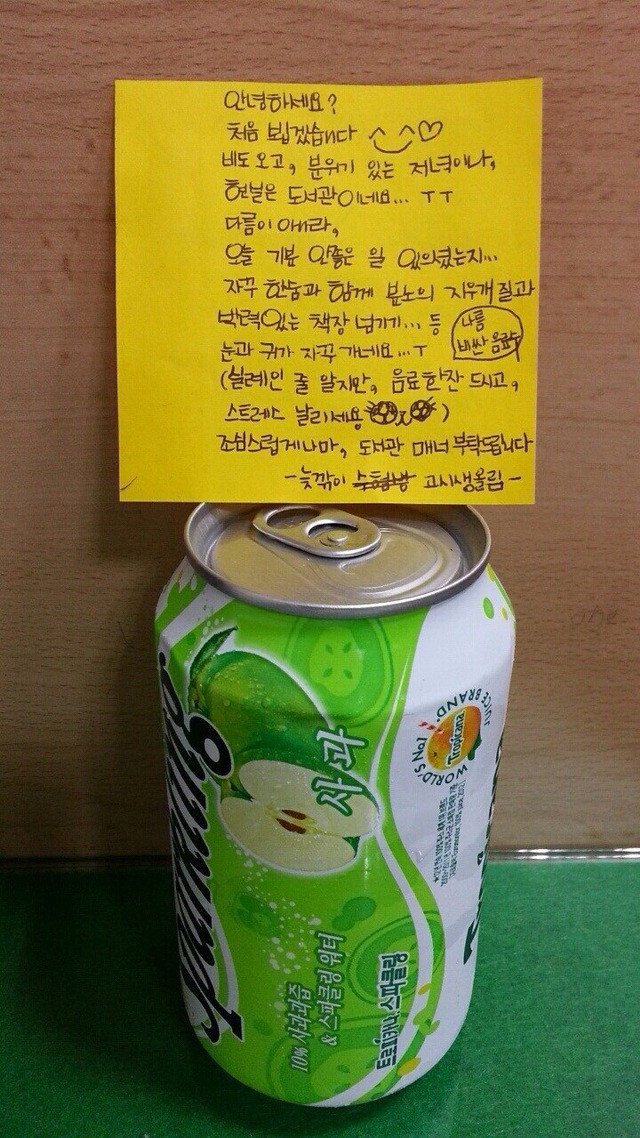 안녕하세요?
처음 뵙겠습니다 ^^♡
비도 오고, 분위기 있는 저녁이나,
현실은 도서관이네요... ㅜㅜ
다름이 아니라,
오늘 기분 안좋은 일 있으셨는지...
자꾸 한숨과 함께 분노의 지우개질과
박력있는 책장 넘기기... 등
나름
비싼 음료
눈과 귀가 자꾸 가네요...ㅜ
(실례인 줄 알지만, 음료한잔 드시고,
스트레스 날리세용)
조심스럽게나마, 도서관 매너 부탁드립니다
-늦깎이 수험생 고시생올림-
사과
Sparkling
WORLD'S No.1 JUICE BRAND.
Tropicana
10% 사과과즙
& 스파클링 워터
트로피카나 스파클링